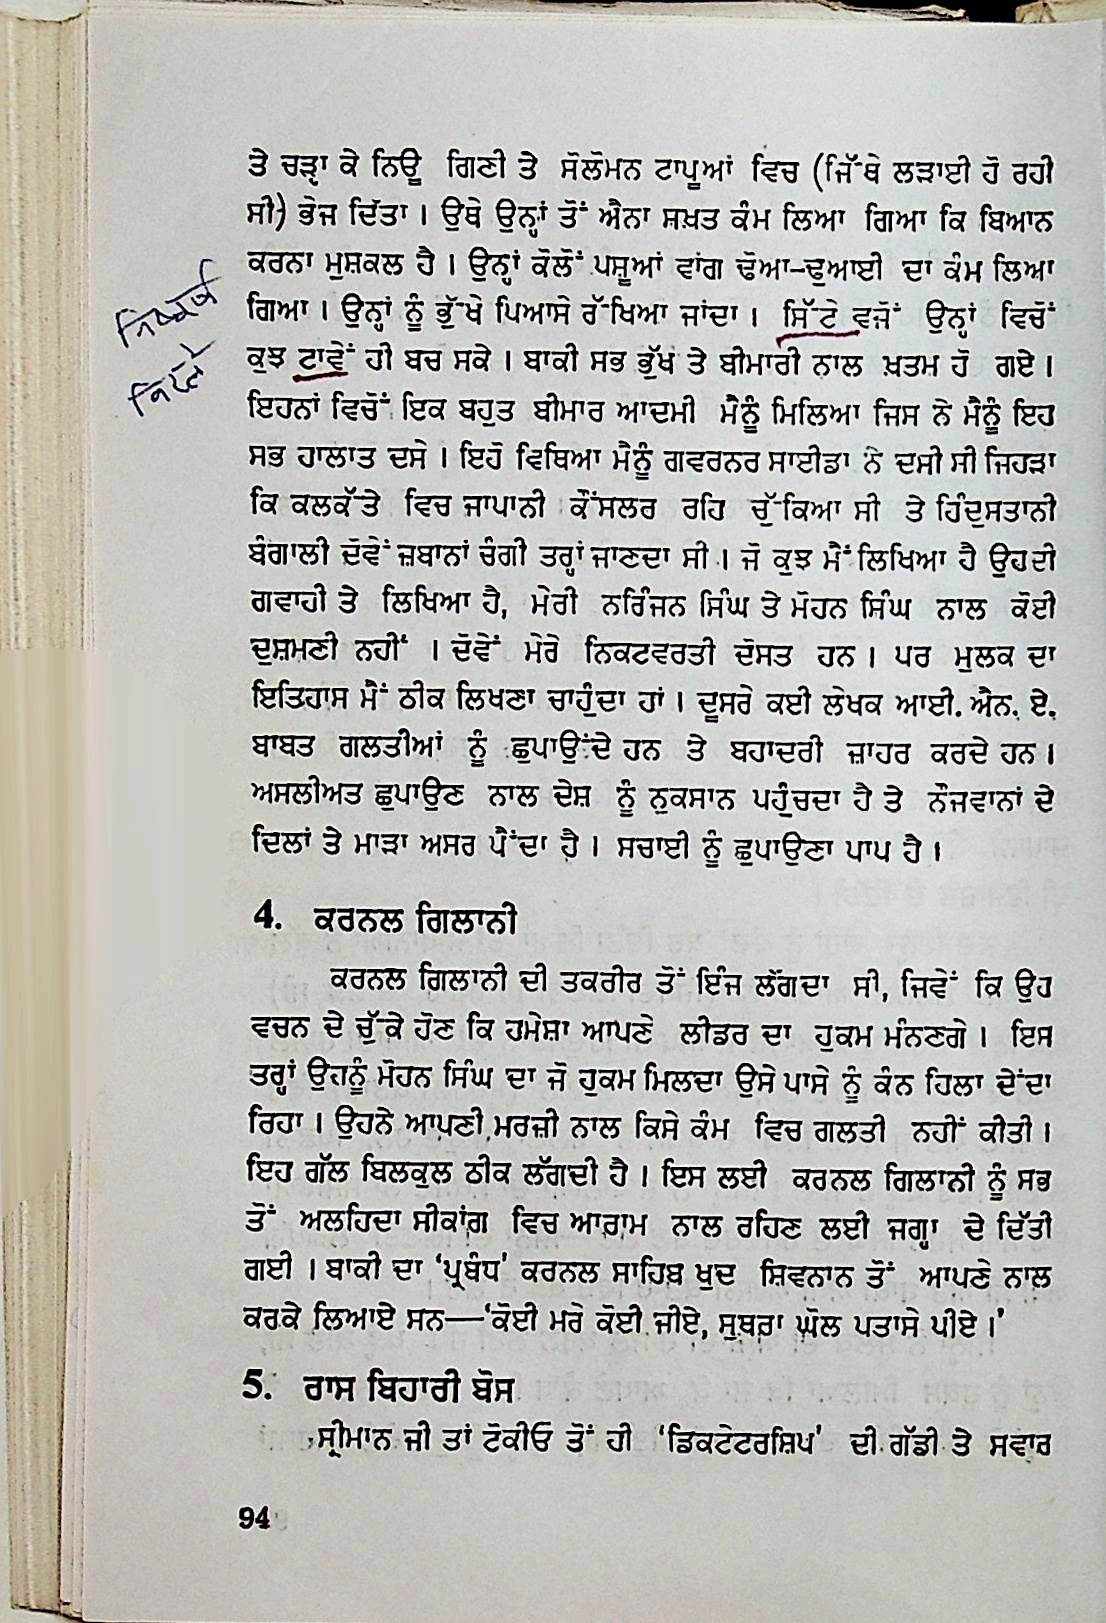 ਤੇ ਚੜ੍ਹਾ ਕੇ ਨਿਊ ਗਿਣੀ ਤੇ ਸੋਲੋਮਨ ਟਾਪੂਆਂ ਵਿਚ (ਜਿੱਥੇ ਲੜਾਈ ਹੋ ਰਹੀ
ਸੀ) ਭੇਜ ਦਿੱਤਾ । ਉਥੇ ਉਨ੍ਹਾਂ ਤੋਂ ਐਨਾ ਸ਼ਖ਼ਤ ਕੰਮ ਲਿਆ ਗਿਆ ਕਿ ਬਿਆਨ
ਕਰਨਾ ਮੁਸ਼ਕਲ ਹੈ । ਉਨ੍ਹਾਂ ਕੋਲੋਂ ਪਸ਼ੂਆਂ ਵਾਂਗ ਢੋਆ-ਢੁਆਈ ਦਾ ਕੰਮ ਲਿਆ
ਗਿਆ । ਉਨ੍ਹਾਂ ਨੂੰ ਭੁੱਖੇ ਪਿਆਸੇ ਰੱਖਿਆ ਜਾਂਦਾ । ਸਿੱਟੇ ਵਜੋਂ ਉਨ੍ਹਾਂ ਵਿਚੋਂ
ਨਿਸ਼ਕਰਸ਼
ਕੁਝ ਟਾਵੇਂ ਹੀ ਬਚ ਸਕੇ । ਬਾਕੀ ਸਭ ਭੁੱਖ ਤੇ ਬੀਮਾਰੀ ਨਾਲ ਖ਼ਤਮ ਹੋ ਗਏ ।
ਵਿਰਲੇ
ਇਹਨਾਂ ਵਿਚੋਂ ਇਕ ਬਹੁਤ ਬੀਮਾਰ ਆਦਮੀ ਮੈਨੂੰ ਮਿਲਿਆ ਜਿਸ ਨੇ ਮੈਨੂੰ ਇਹ
ਸਭ ਹਾਲਾਤ ਦਸੇ । ਇਹੋ ਵਿਥਿਆ ਮੈਨੂੰ ਗਵਰਨਰ ਸਾਈਡਾ ਨੇ ਦਸੀ ਸੀ ਜਿਹੜਾ
ਕਿ ਕਲਕੱਤੇ ਵਿਚ ਜਾਪਾਨੀ ਕੌਂਸਲਰ ਰਹਿ ਚੁੱਕਿਆ ਸੀ ਤੇ ਹਿੰਦੁਸਤਾਨੀ
ਬੰਗਾਲੀ ਦੋਵੇਂ ਜ਼ਬਾਨਾਂ ਚੰਗੀ ਤਰ੍ਹਾਂ ਜਾਣਦਾ ਸੀ । ਜੋ ਕੁਝ ਮੈਂ ਲਿਖਿਆ ਹੈ ਉਹਦੀ
ਗਵਾਹੀ ਤੇ ਲਿਖਿਆ ਹੈ, ਮੇਰੀ ਨਰਿੰਜਨ ਸਿੰਘ ਤੇ ਮੋਹਨ ਸਿੰਘ ਨਾਲ ਕੋਈ
ਦੁਸ਼ਮਣੀ ਨਹੀਂ । ਦੋਵੇਂ ਮੇਰੇ ਨਿਕਟਵਰਤੀ ਦੋਸਤ ਹਨ । ਪਰ ਮੁਲਕ ਦਾ
ਇਤਿਹਾਸ ਮੈਂ ਠੀਕ ਲਿਖਣਾ ਚਾਹੁੰਦਾ ਹਾਂ । ਦੂਸਰੇ ਕਈ ਲੇਖਕ ਆਈ. ਐਨ. ਏ.
ਬਾਬਤ ਗਲਤੀਆਂ ਨੂੰ ਛੁਪਾਉਂਦੇ ਹਨ ਤੇ ਬਹਾਦਰੀ ਜ਼ਾਹਰ ਕਰਦੇ ਹਨ ।
ਅਸਲੀਅਤ ਛੁਪਾਉਣ ਨਾਲ ਦੇਸ਼ ਨੂੰ ਨੁਕਸਾਨ ਪਹੁੰਚਦਾ ਹੈ ਤੇ ਨੌਜਵਾਨਾਂ ਦੇ
ਦਿਲਾਂ ਤੇ ਮਾੜਾ ਅਸਰ ਪੈਂਦਾ ਹੈ । ਸਚਾਈ ਨੂੰ ਛੁਪਾਉਣਾ ਪਾਪ ਹੈ ।
4. ਕਰਨਲ ਗਿਲਾਨੀ
ਕਰਨਲ ਗਿਲਾਨੀ ਦੀ ਤਕਰੀਰ ਤੋਂ ਇੰਜ ਲੱਗਦਾ ਸੀ, ਜਿਵੇਂ ਕਿ ਉਹ
ਵਚਨ ਦੇ ਚੁੱਕੇ ਹੋਣ ਕਿ ਹਮੇਸ਼ਾ ਆਪਣੇ ਲੀਡਰ ਦਾ ਹੁਕਮ ਮੰਨਣਗੇ । ਇਸ
ਤਰ੍ਹਾਂ ਉਹਨੂੰ ਮੋਹਨ ਸਿੰਘ ਦਾ ਜੋ ਹੁਕਮ ਮਿਲਦਾ ਉਸੇ ਪਾਸੇ ਨੂੰ ਕੰਨ ਹਿਲਾ ਦੇਂਦਾ
ਰਿਹਾ । ਉਹਨੇ ਆਪਣੀ ਮਰਜ਼ੀ ਨਾਲ ਕਿਸੇ ਕੰਮ ਵਿਚ ਗਲਤੀ ਨਹੀਂ ਕੀਤੀ ।
ਇਹ ਗੱਲ ਬਿਲਕੁਲ ਠੀਕ ਲੱਗਦੀ ਹੈ । ਇਸ ਲਈ ਕਰਨਲ ਗਿਲਾਨੀ ਨੂੰ ਸਭ
ਤੋਂ ਅਲਹਿਦਾ ਸੀਕਾਂਗ ਵਿਚ ਆਰਾਮ ਨਾਲ ਰਹਿਣ ਲਈ ਜਗ੍ਹਾ ਦੇ ਦਿੱਤੀ
ਗਈ । ਬਾਕੀ ਦਾ ‘ਪ੍ਰਬੰਧ’ ਕਰਨਲ ਸਾਹਿਬ ਖੁਦ ਸ਼ਿਵਨਾਨ ਤੋਂ ਆਪਣੇ ਨਾਲ
ਕਰਕੇ ਲਿਆਏ ਸਨ—‘ਕੋਈ ਮਰੇ ਕੋਈ ਜੀਏ, ਸੁਥਰਾ ਘੋਲ ਪਤਾਸੇ ਪੀਏ ।’
5. ਰਾਸ ਬਿਹਾਰੀ ਬੋਸ
ਸ੍ਰੀਮਾਨ ਜੀ ਤਾਂ ਟੋਕੀਓ ਤੋਂ ਹੀ ‘ਡਿਕਟੇਟਰਸ਼ਿਪ’ ਦੀ ਗੱਡੀ ਤੇ ਸਵਾਰ
94